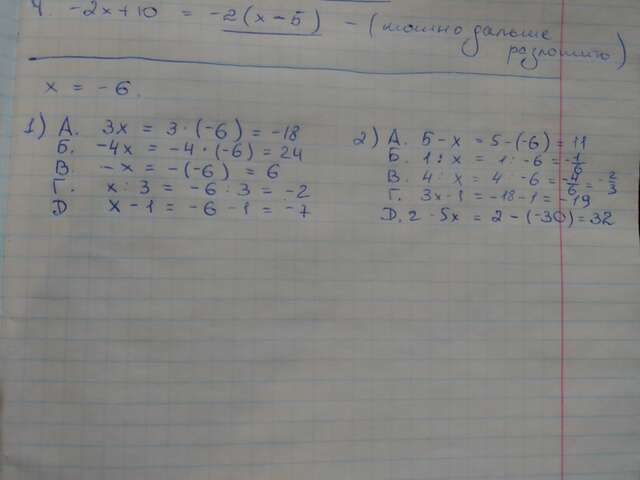 4. -2x+10 = -2(x-5) - (можно дальше
разложить)
x = -6.
1) А. 3x = 3·(-6) = -18
Б. -4x = -4·(-6) = 24
В. -x = -(-6) = 6
Г. x:3 = -6:3 = -2
D x-1 = -6-1 = -7
2) А. 5-x = 5-(-6) = 11
Б. 1:x = 1:-6 = -1/6
В. 4:x = 4:-6 = -4/6 = -2/3
Г. 3x-1 = -18-1 = -19
D. 2-5x = 2-(-30) = 32